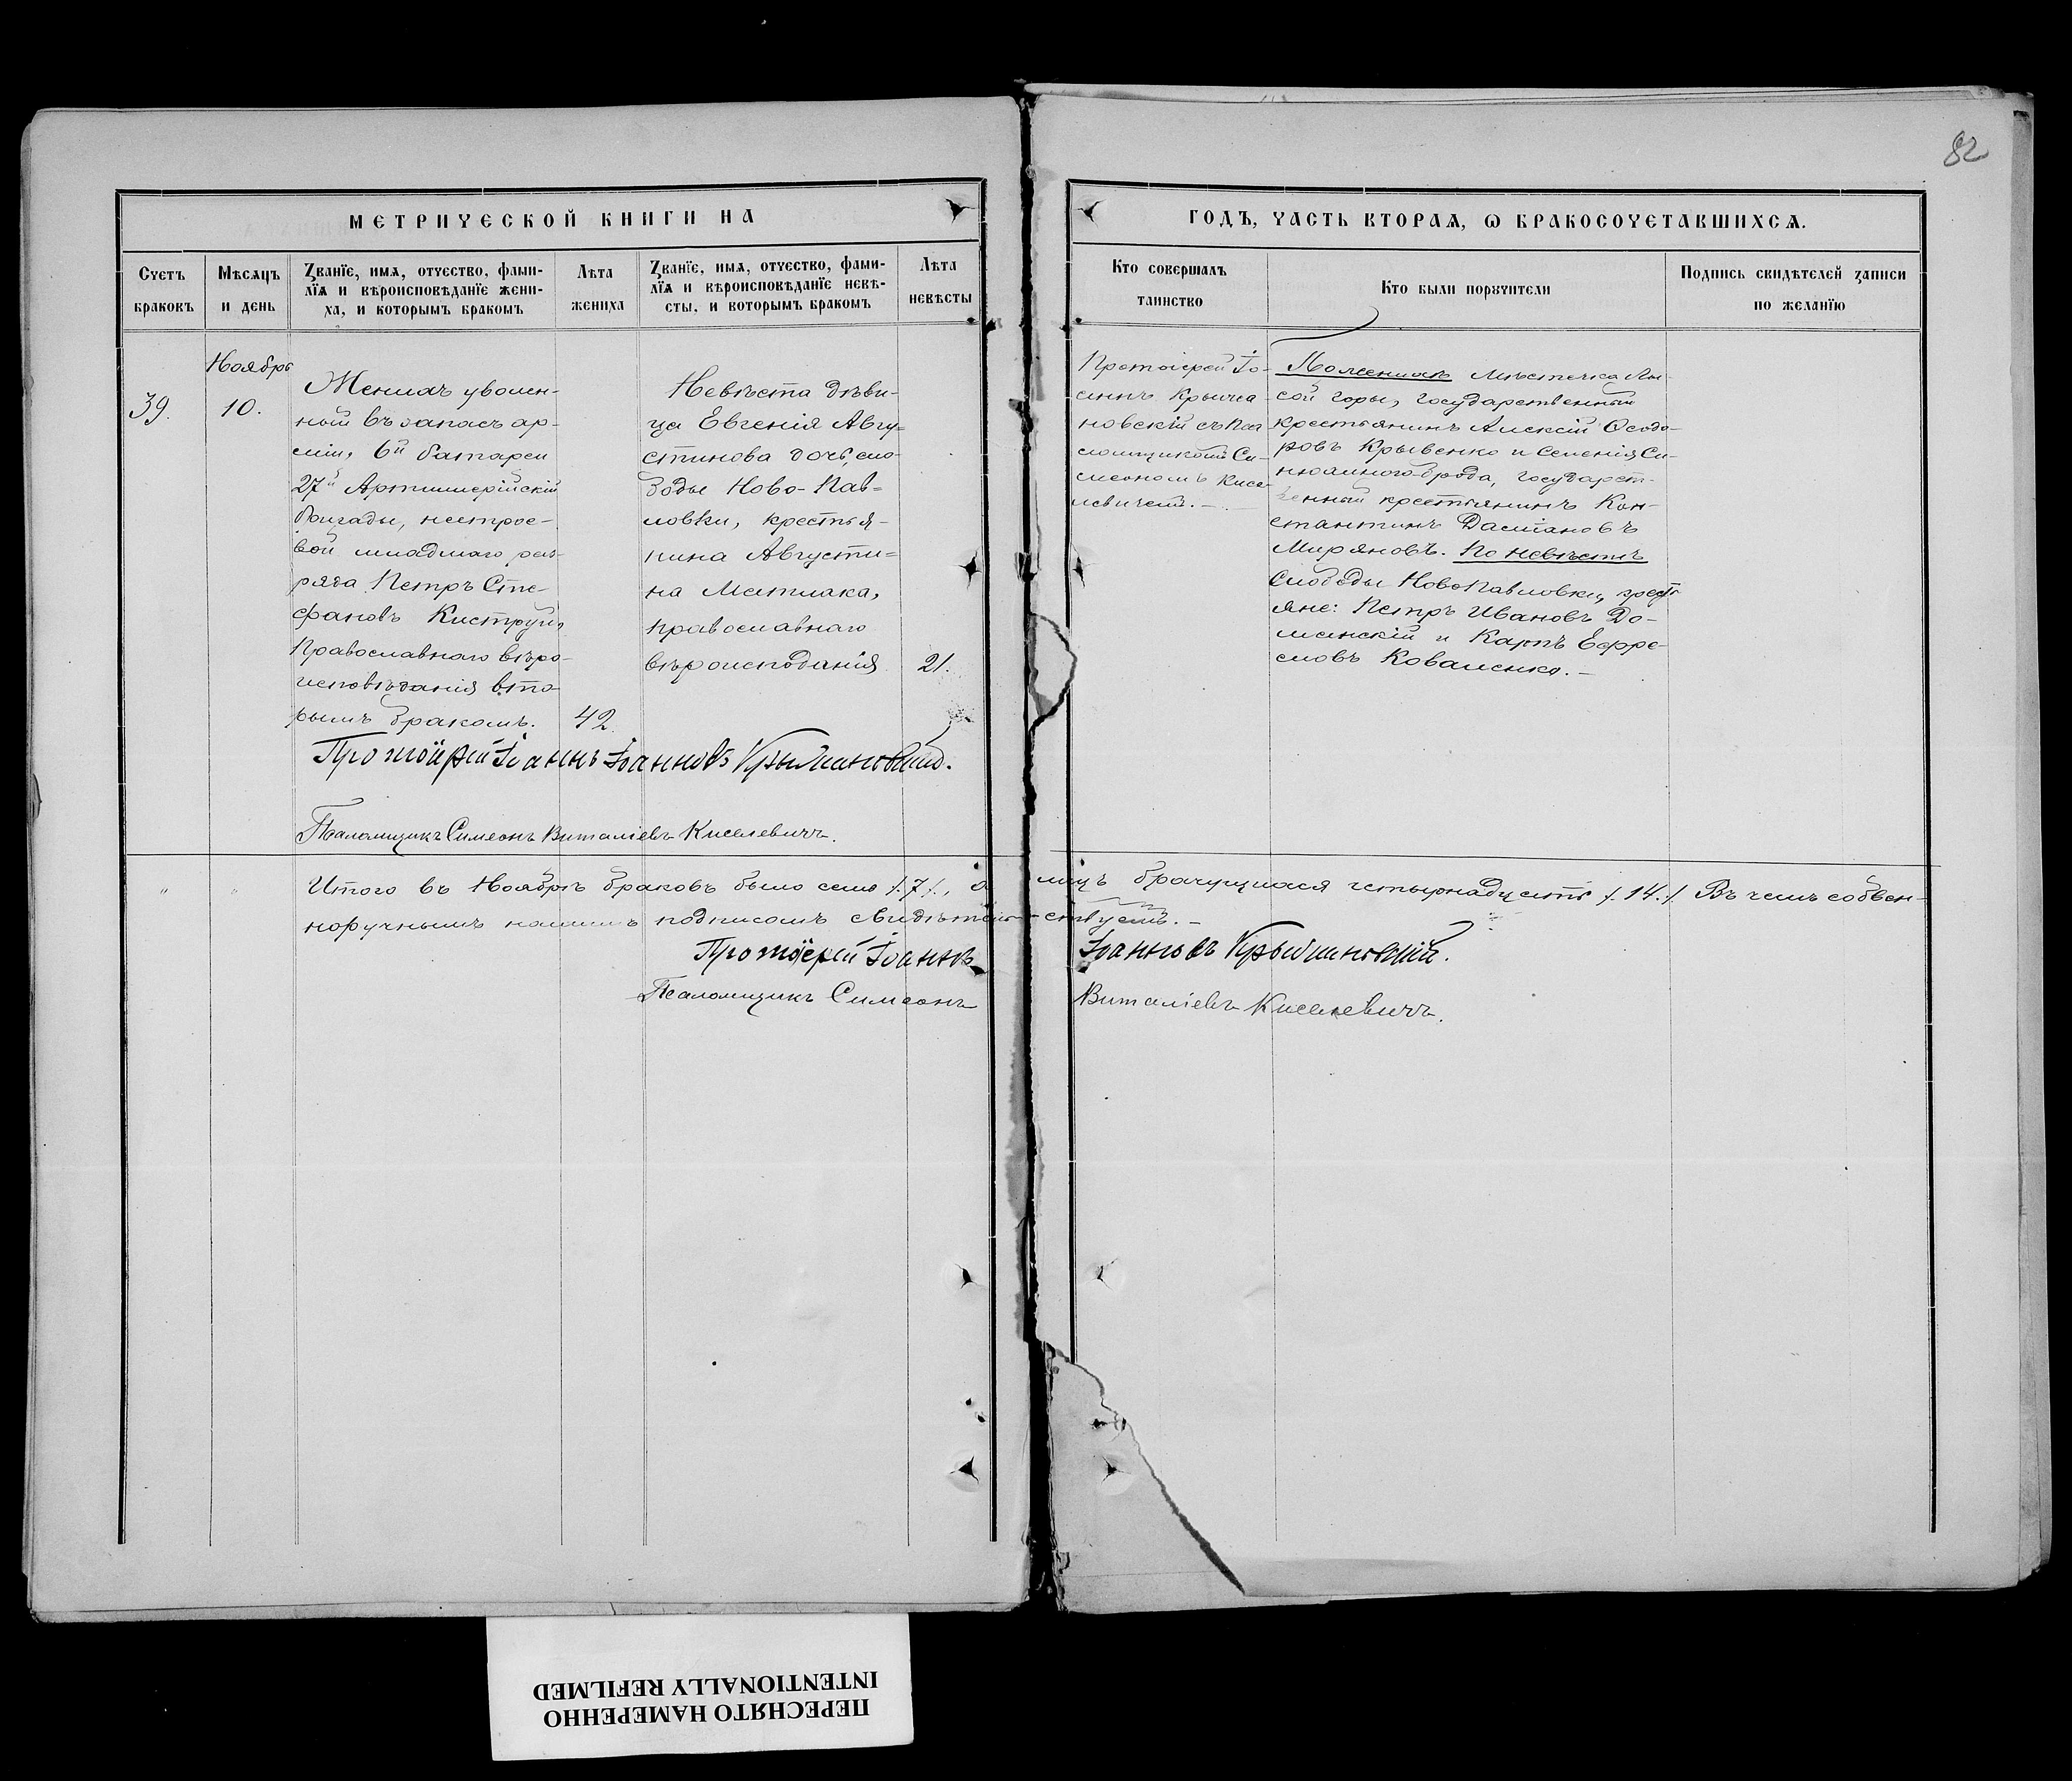 82
МЕТРИЧЕСКОЙ КНИГИ НА
ГОДЪ, ЧАСТЬ ВТОРАѦ, Ѡ БРАКОСОЧЕТАВШИХСѦ.
Счетъ браковъ
Мѣсѧцъ и день
Званїе, имѧ, отчество, фами-
лїѧ и вѣроисповѣданїе жени-
ха, и которымъ бракомъ
Лѣта жениха
Званїе, имѧ, отчество, фами-
лїѧ и вѣроисповѣданїе невѣ-
сты, и которымъ бракомъ
Лѣта невѣсты
Кто совершалъ таинство
Кто были порꙋчители
Подпись свидѣтелей записи
по желанїю
39.
Ноябрь
10.
Женихъ уволен-
ный въ запасъ ар-
міи, 6й батареи
27й Артиллерійскій
бригады, нестрое-
вой младшаго раз-
ряда Петръ Сте-
фановъ Кистрỹнъ
Православнаго вѣро-
исповѣданія вто-
рымъ бракомъ.
42
Невѣста дѣви-
ца Евгенія Авгу-
стинова дочь, сло-
боды Ново-Пав-
ловки, крестья-
нина Августи-
на Матлака,
православнаго
вѣроисподанія
21.
Протоіерей Іо-
аннъ Крыжа
новскій съ Пса
ломщикомъ Си-
меономъ Кисе-
левичемъ.
По женихѣ мѣстечка Лы
сой горы, государственный
крестьянинъ Алексій Ѳеодо-
ровъ Крывенко и селенія Си-
нюхиного-брода, государст-
венный крестьянинъ Кон-
стантинъ
Миряновъ. По невѣстѣ
слободы Новопавловки, крест
яне: Петръ Ивановъ До-
манскій и Карпъ Ефре-
мовъ Коваленко.
Протоіерей Іоаннъ Іоанновъ Крыжановскій.
Псаломщикъ Симеонъ Виталіевъ Киселевичъ.
" " Итого въ Ноябрѣ браковъ было семь /.7/., а лицъ брачущихся четырнадцать /.14./ Въ чемъ собвен-
норучнымъ нашимъ подписомъ свидѣтель-ствуемъ.
Протоіерей Іоаннъ Іоанновъ Крыжановскій.
Псаломщикъ Симеонъ Виталіевъ Киселевичъ.
ПЕРЕСНЯТО НАМЕРЕННО
INTENTIONALLY REFILMED